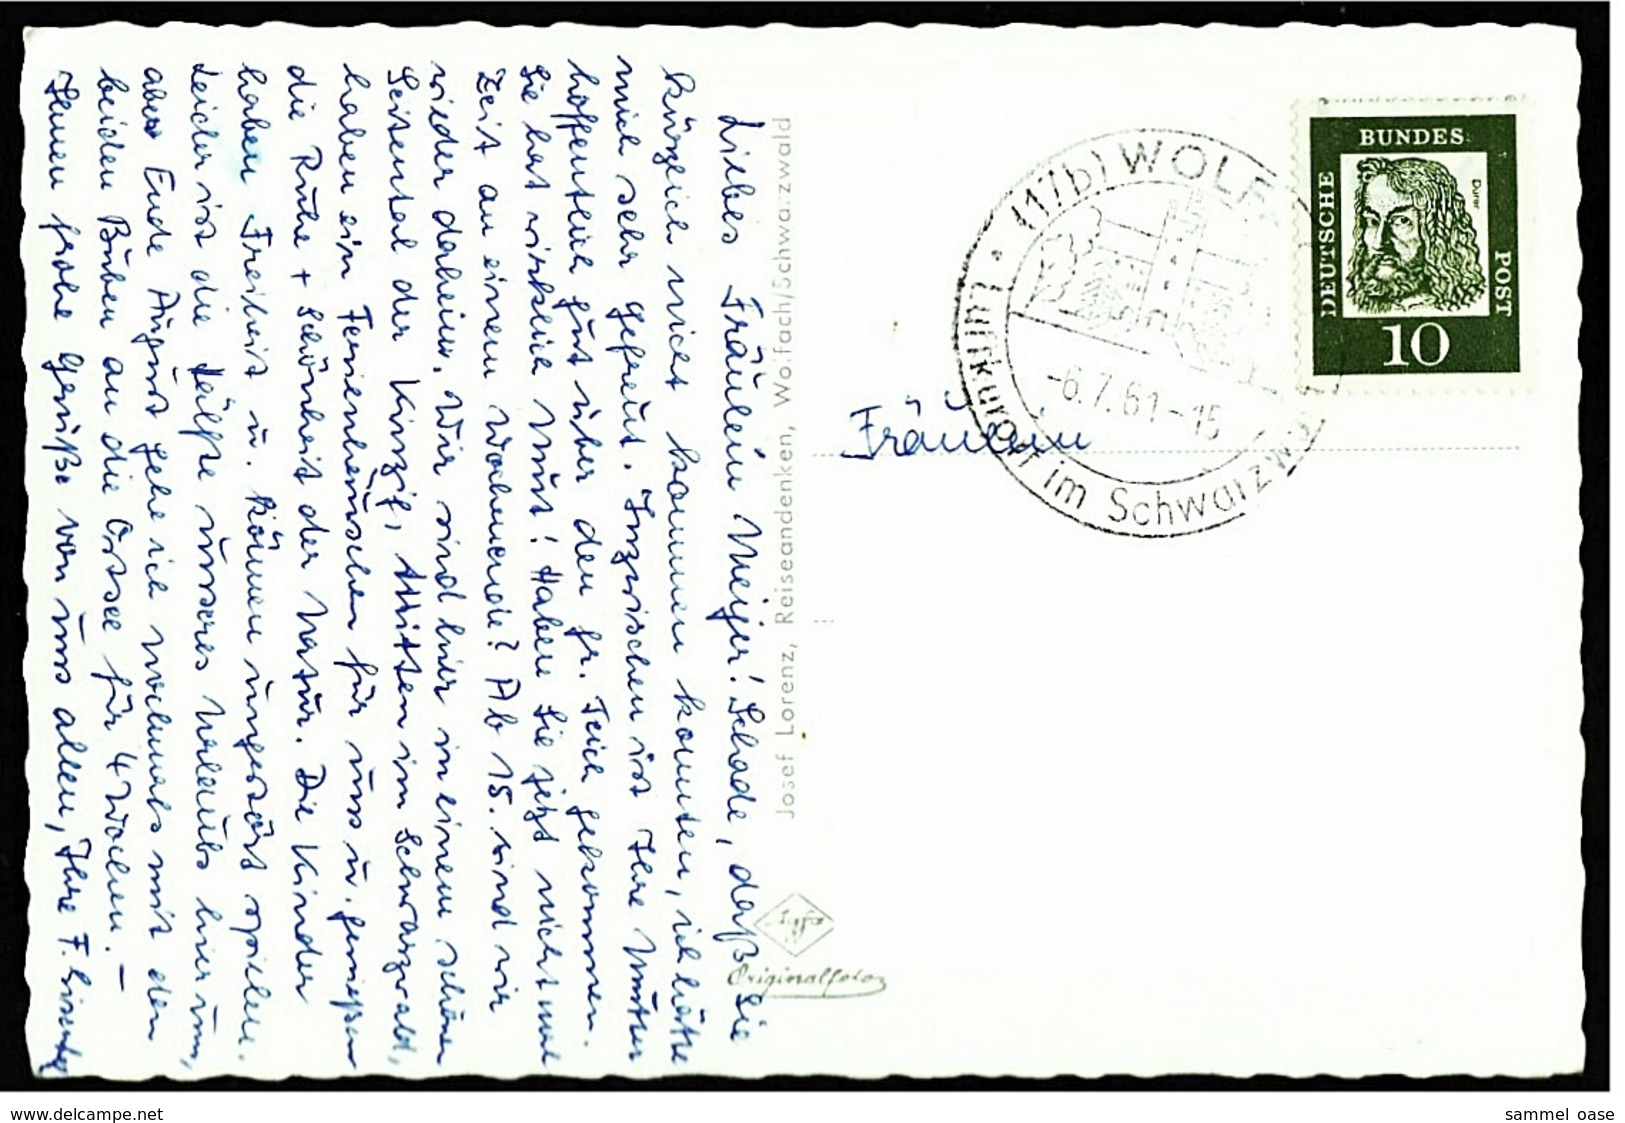 Liebes Fräulein Meyer! Schade, daß Sie
kürzlich nicht kommen konnten, ich hätte
mich sehr gefreut. Inzwischen ist Ihre Mutter
hoffentlich gut über den gr. Teich gekommen.
Sie hat wirklich Mut! Haben Sie jetzt nicht mal
Zeit an einem Wochenende? Ab 15. sind wir
wieder daheim. Wir sind hier in einem schönen
Seitental der Kinzig, mitten im Schwarzwald,
haben ein Ferienhäuschen für uns u. genießen
die Ruhe + Schönheit der Natur. Die Kinder
haben Freiheit u. können ungestört spielen.
Leider ist die Hälfte unseres Urlaubs hier um,
aber Ende August gehe ich nochmals mit den
beiden Buben an die Ostsee für 4 Wochen. –
Ihnen frohe Grüße von uns allen, Ihre F.
Josef Lorenz, Reiseandenken, Wolfach/Schwarzwald
Agfa
Originalfoto
(17b) WOLF
Luftkurort im Schwarzwald
-6.7.61-15
BUNDES
DEUTSCHE
POST
Dürer
10
Fräulein
www.delcampe.net
sammel oase